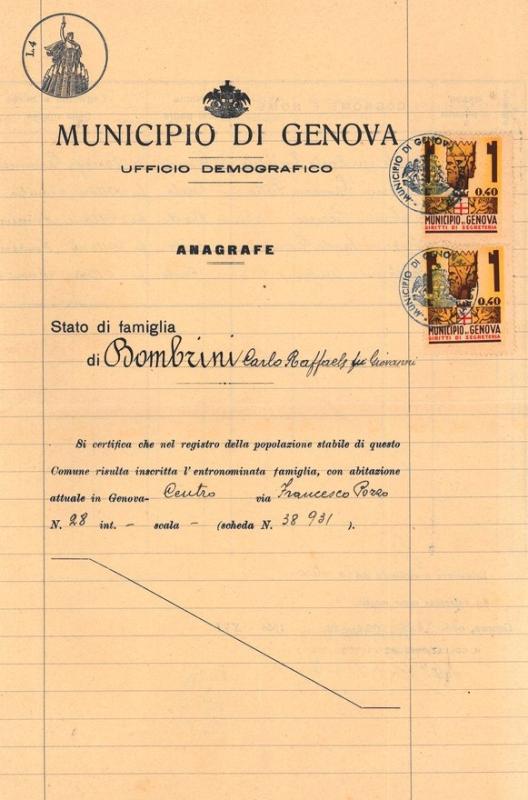 L. 4
MUNICIPIO DI GENOVA
UFFICIO DEMOGRAFICO
ANAGRAFE
MUNICIPIO DI GENOVA
1 1
0,40
MUNICIPIO DI GENOVA
DIRITTI DI SEGRETERIA
MUNICIPIO DI GENOVA
1 1
0,40
MUNICIPIO DI GENOVA
DIRITTI DI SEGRETERIA
Stato di famiglia
di Bombrini Carlo Raffaele fu Giovanni
Si certifica che nel registro della popolazione stabile di questo
Comune risulta inscritta l'entronominata famiglia, con abitazione
attuale in Genova- Centro via Francesco Pozzo
N. 28 int. - scala - (scheda N. 38931 ).